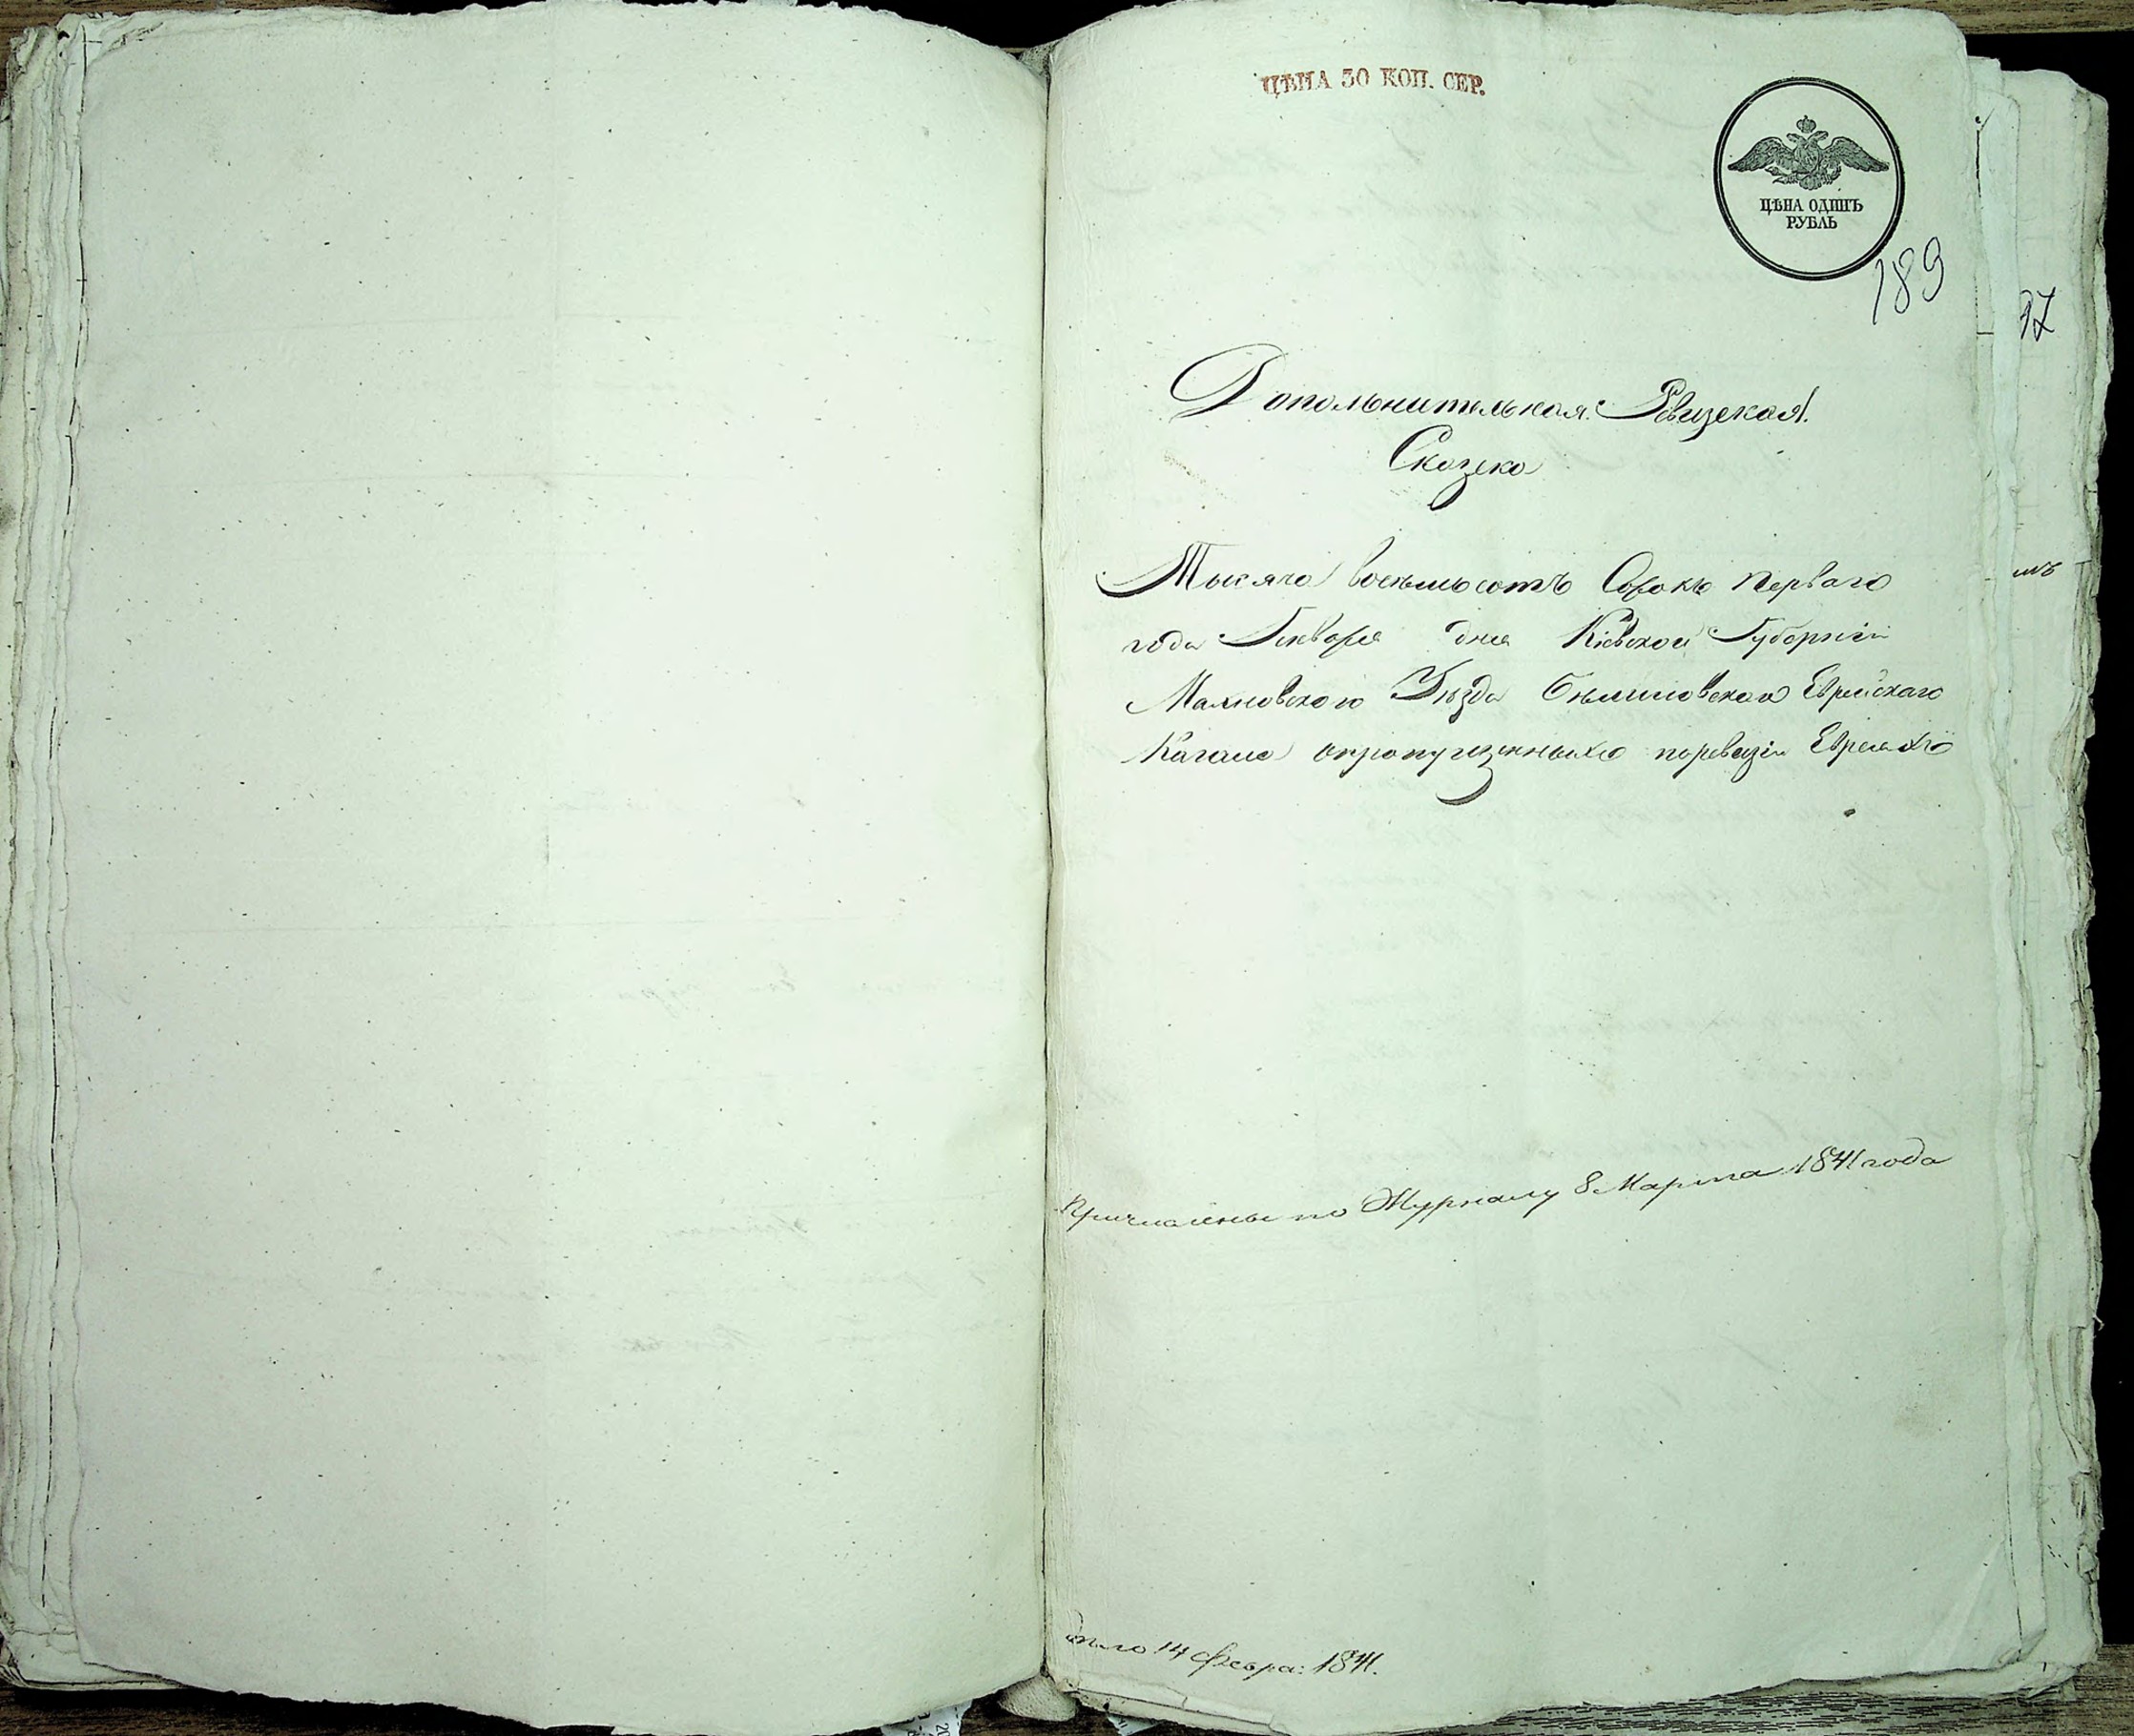 ЦѢНА 30 КОП. СЕР.
ЦѢНА ОДИНЪ
РУБЛЬ
189
17
Дополнительная Ревизская
Сказка
Тысяча восемьсотъ Сорокъ Перваго
года Генваря дня Кіевской Губерніи
Махновского Уезда Бѣлиловского Еврейскаго
Кагала опропущенныхъ поревизіи Евреяхъ
Причислены по Журналу 8 Марта 1841 года
14 Февра: 1841.